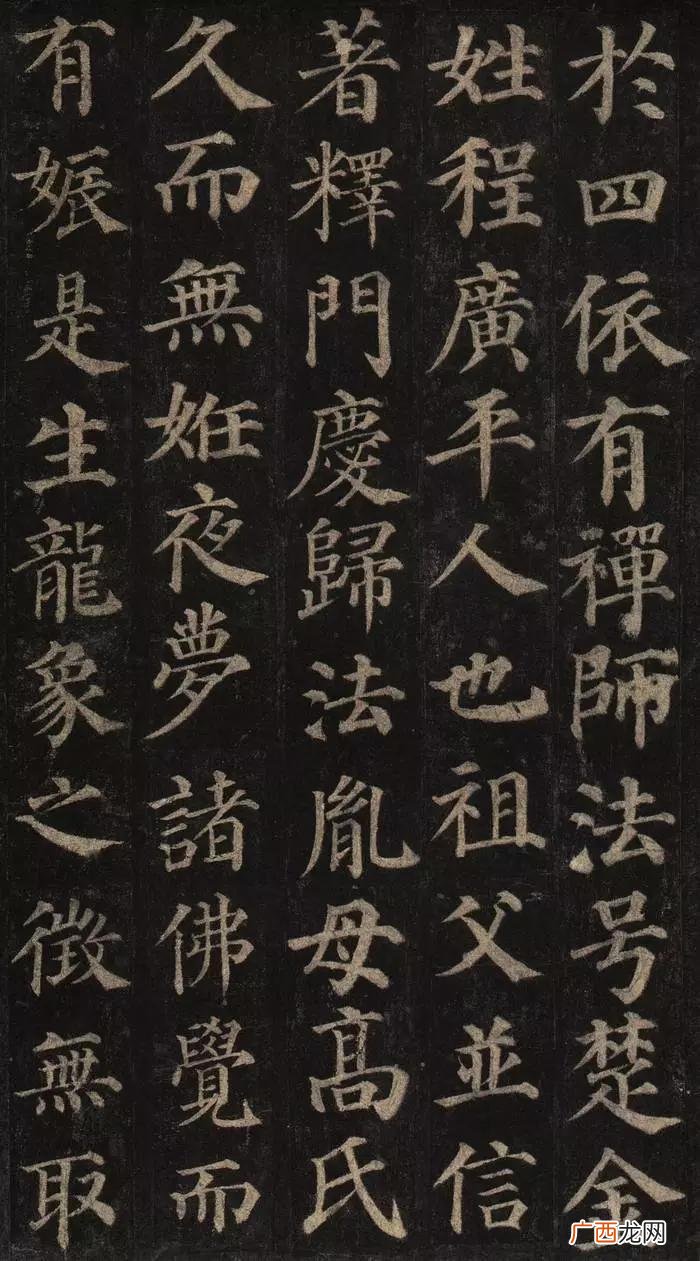 於四依有禪師法号楚金
姓程廣平人也祖父並信
著釋門慶歸法胤母高氏
久而無姙夜夢諸佛覺而
有娠是生龍象之徵無取
广西龙网